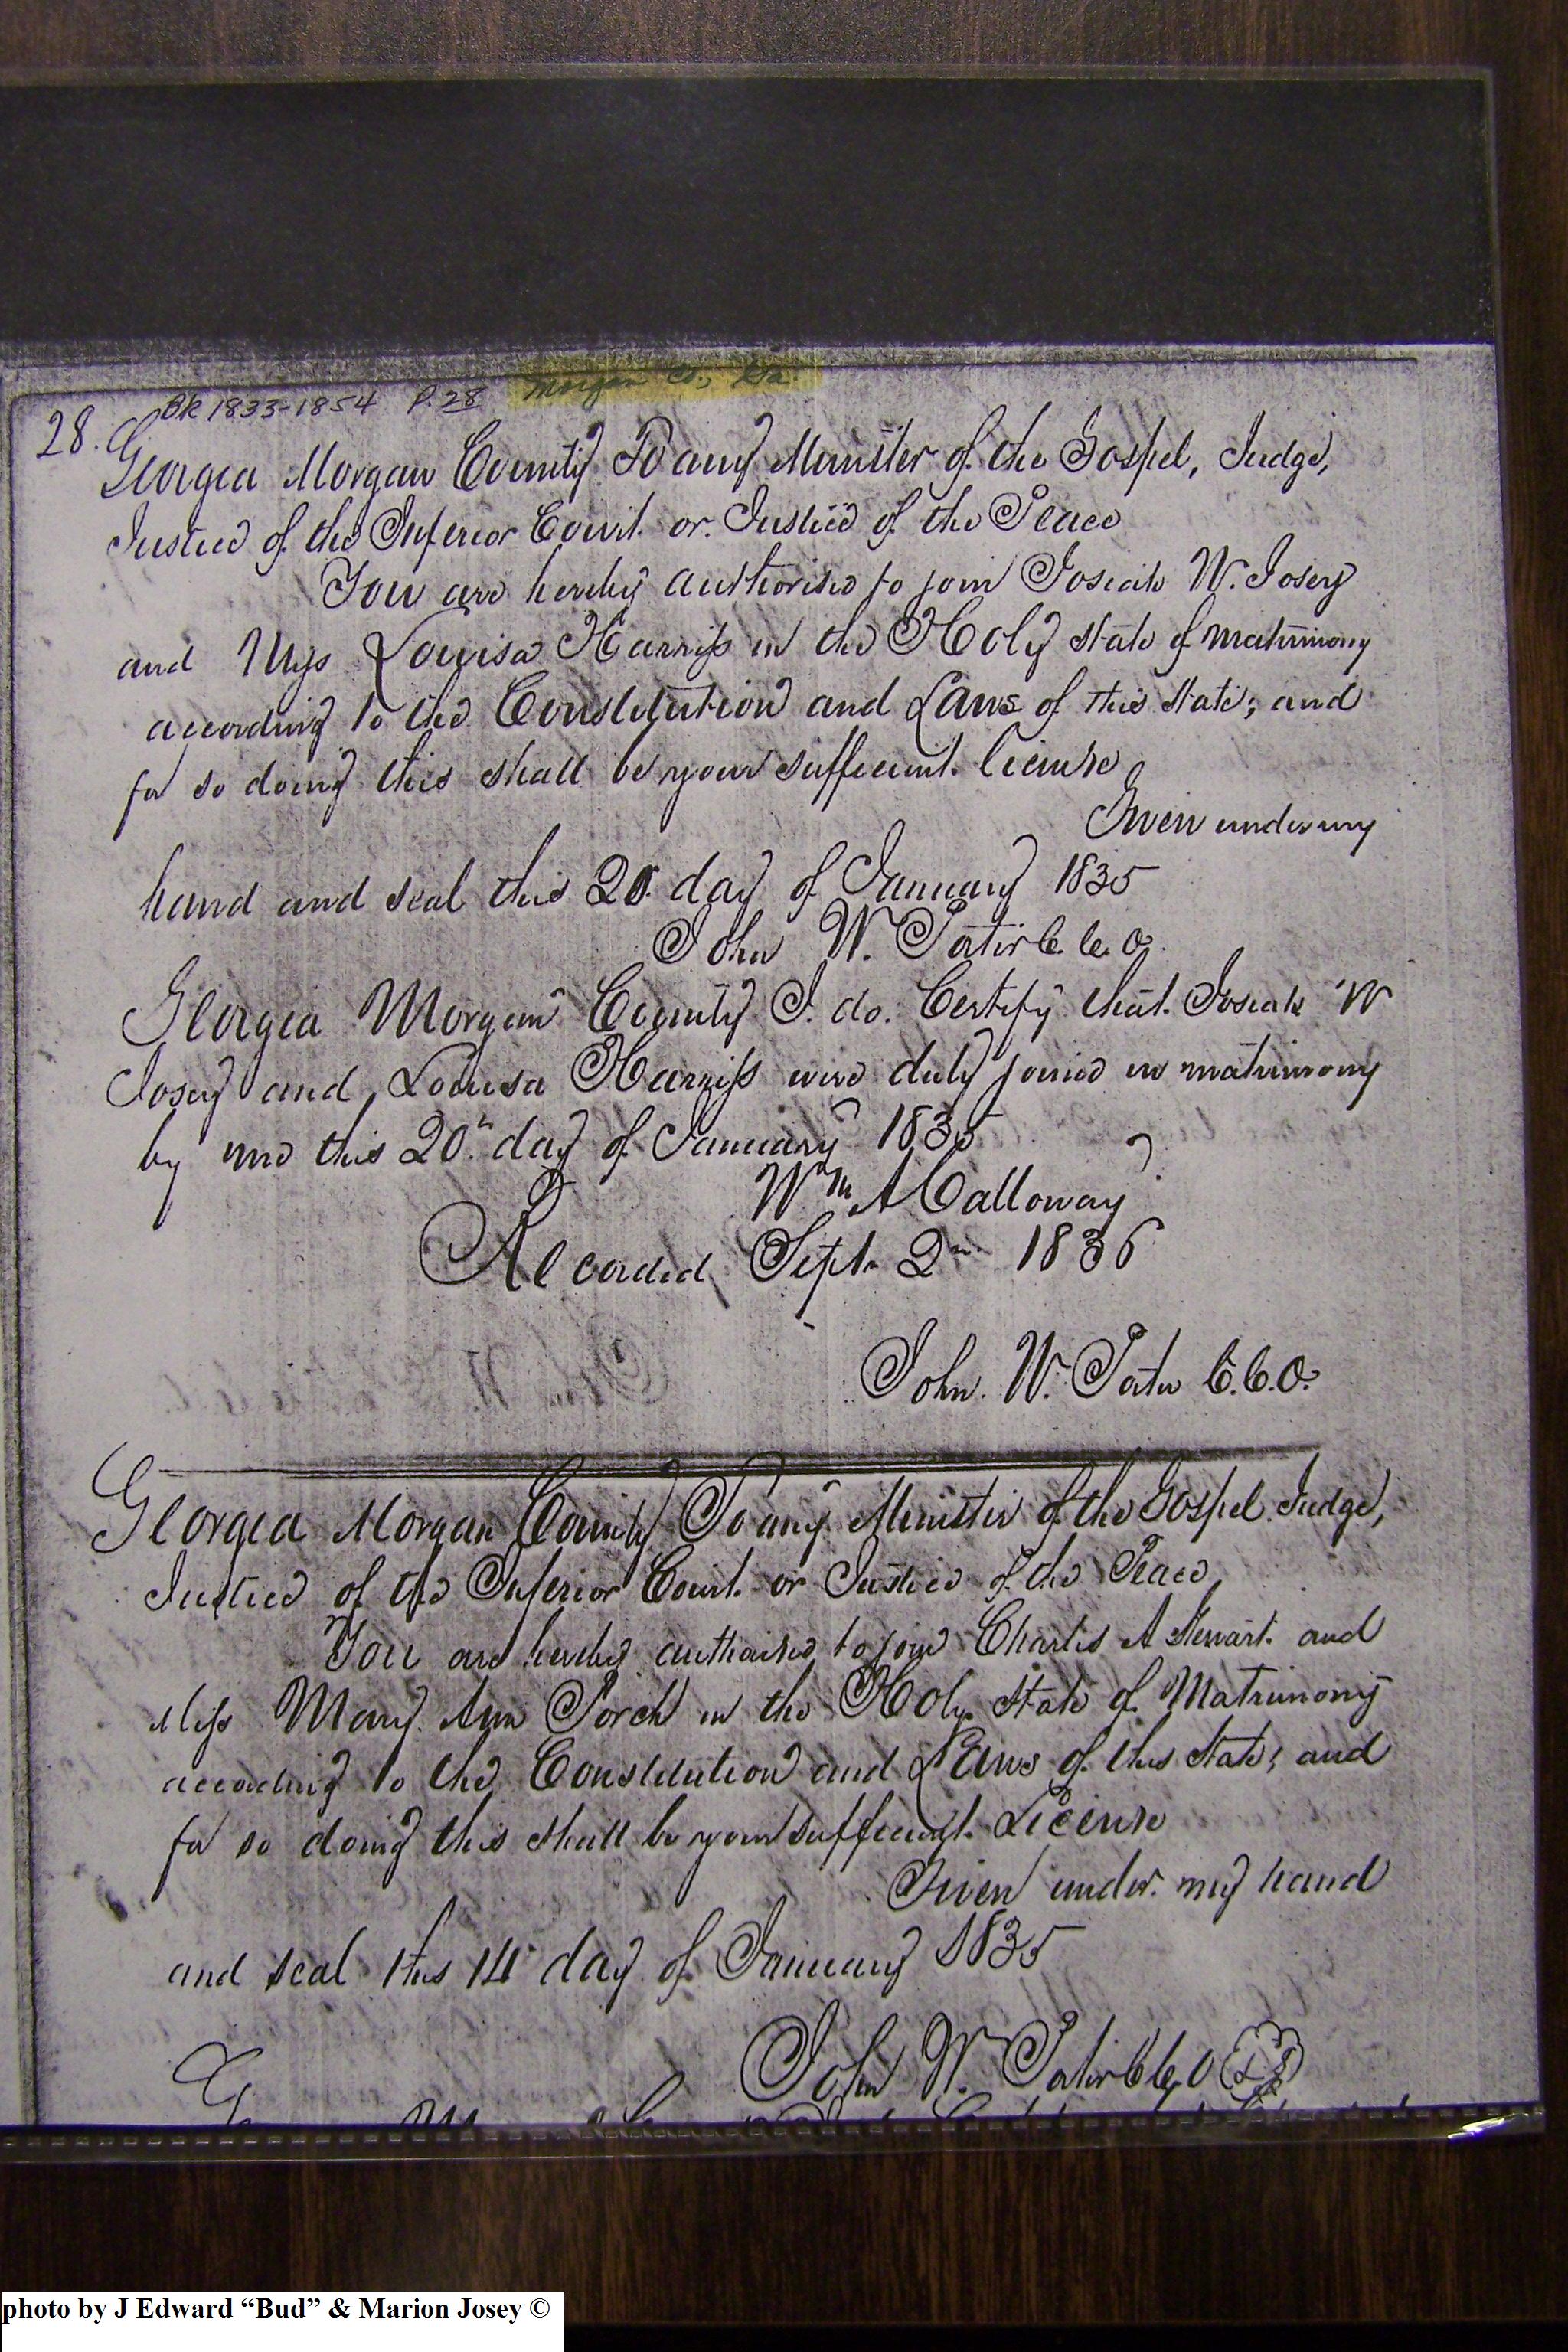 Bk 1833-1854 P. 28 Morgan Co., Ga.
28.
Georgia Morgan County To any Minister of the Gospel, Judge,
Justice of the Inferior Court. or. Justice of the Peace
You are hereby authorised to join Josiah W. Josey
and Miss Louisa Harriss in the Holy state of matrimony
according to the Constitution and Laws of this State; and
for so doing this shall be your sufficient. license
Given under my
hand and seal this 20. day of January 1835
John W. Porter C. C. O.
Georgia Morgan County I. do. Certify that. Josiah W
Josey and Louisa Harriss were duly joined in matrimony
by me this 20th day of January 1835
Wm A Calloway
Recorded Sept. 2nd 1836
John. W. Porter C.C.O.
Georgia Morgan County To any Minister of the Gospel Judge,
Justice of the Inferior Court. or Justice of the Peace
You are hereby authorised to join Charles A Stewart. and
Miss Mary Ann Porch in the Holy State of Matrimony
according to the Constitution and Laws of this State; and
for so doing this shall be your sufficient. License
Given under. my hand
and seal this 14 day of January 1835
John W. Porter C C O L S
photo by J Edward “Bud” & Marion Josey ©